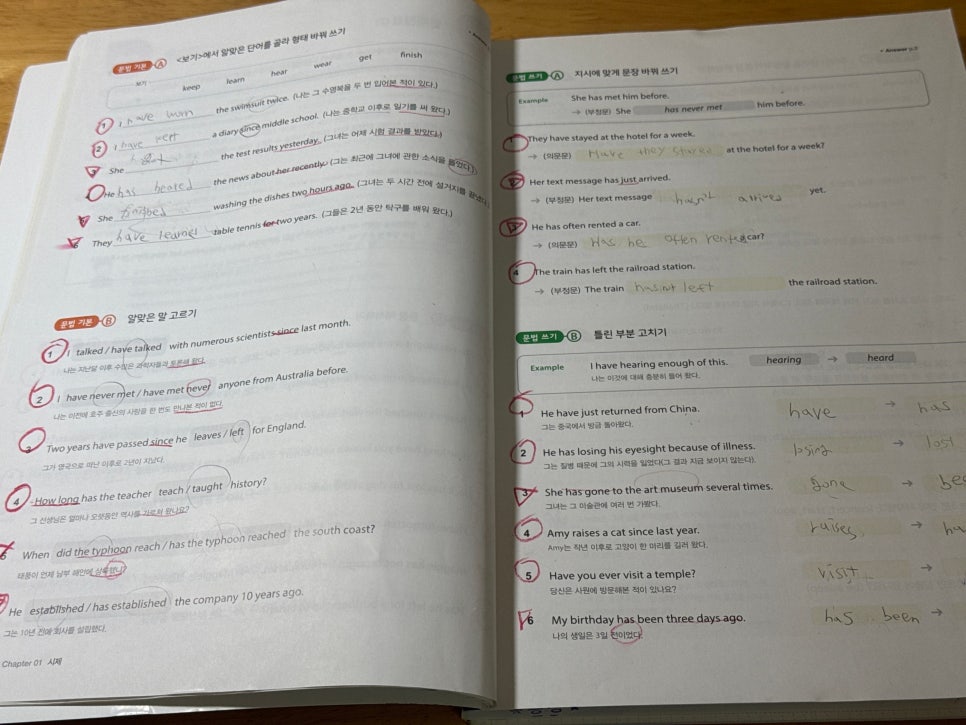 문법 기본 A <보기>에서 알맞은 단어를 골라 형태 바꿔 쓰기
보기 keep learn hear wear get finish
1 I have worn the swimsuit twice. (나는 그 수영복을 두 번 입어본 적이 있다.)
2 I have kept a diary since middle school. (나는 중학교 이후로 일기를 써 왔다.)
3 She the test results yesterday. (그녀는 어제 시험 결과를 받았다.)
He has heared the news about her recently. (그는 최근에 그녀에 관한 소식을 들었다.)
5 She washing the dishes two hours ago. (그녀는 두 시간 전에 설거지를
6 They have learned table tennis for two years. (그들은 2년 동안 탁구를 배워 왔다.)
문법 기본 B 알맞은 말 고르기
1 I talked / have talked with numerous scientists since last month.
나는 지난달 이후 수많은 과학자들과 토론해 왔다.
2 I have never met / have met never anyone from Australia before.
나는 이전에 호주 출신의 사람을 한 번도 만나본 적이 없다.
3 Two years have passed since he leaves / left for England.
그가 영국으로 떠난 이후로 2년이 지났다.
4 How long has the teacher teach / taught history?
그 선생님은 얼마나 오랫동안 역사를 가르쳐 왔나요?
5 When did the typhoon reach / has the typhoon reached the south coast?
태풍이 언제 남부 해안에 상륙했니?
He established / has established the company 10 years ago.
그는 10년 전에 회사를 설립했다.
Chapter 01 시제
Answer p.2
문법 쓰기 A 지시에 맞게 문장 바꿔 쓰기
Example She has met him before.
→ (부정문) She has never met him before.
1 They have stayed at the hotel for a week.
→ (의문문) Have they stared at the hotel for a week?
2 Her text message has just arrived.
→ (부정문) Her text message hasn't arrived yet.
3 He has often rented a car.
→ (의문문) Has he often rented a car?
4 The train has left the railroad station.
→ (부정문) The train hasn't left the railroad station.
문법 쓰기 B 틀린 부분 고치기
Example I have hearing enough of this. hearing → heard
나는 이것에 대해 충분히 들어 왔다.
1 He have just returned from China. have → has
그는 중국에서 방금 돌아왔다.
2 He has losing his eyesight because of illness. losing → lost
그는 질병 때문에 그의 시력을 잃었다(그 결과 지금 보이지 않는다).
3 She has gone to the art museum several times. gone →
그녀는 그 미술관에 여러 번 가봤다.
4 Amy raises a cat since last year. raises →
Amy는 작년 이후로 고양이 한 마리를 길러 왔다.
5 Have you ever visit a temple? visit →
당신은 사원에 방문해본 적이 있나요?
6 My birthday has been three days ago. has been →
나의 생일은 3일 전이었다.